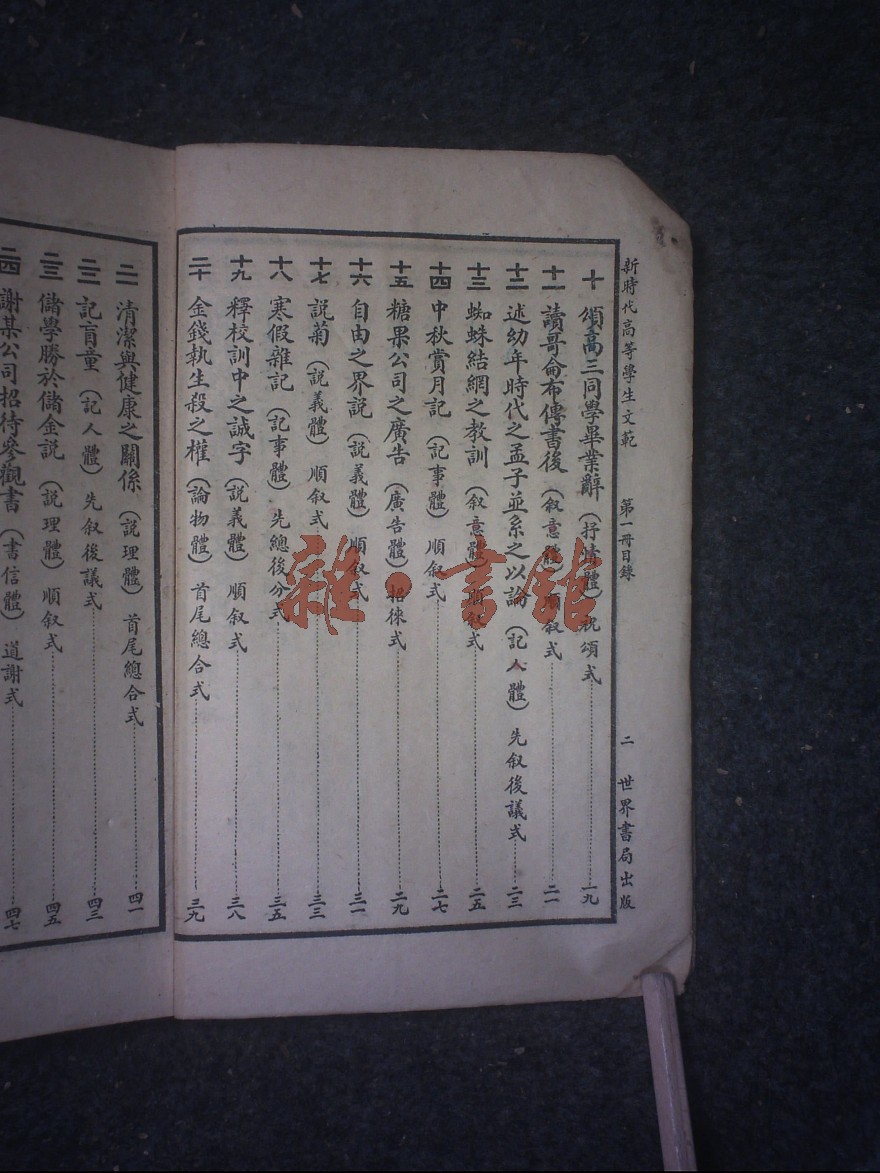 新時代高等學生文範 第一冊目錄 二 世界書局出版
十 頌高三同學畢業辭（抒情體）祝頌式 一九
十一 讀哥侖布傳書後（叙意體）順叙式 二一
十二 述幼年時代之孟子並系之以論（記人體）先叙後議式 二三
十三 蜘蛛結網之教訓（叙意體）順叙式 二五
十四 中秋賞月記（記事體）順叙式 二七
十五 糖果公司之廣告（廣告體）招徠式 二九
十六 自由之界説（説義體）順叙式 三一
十七 説菊（説義體）順叙式 三三
十八 寒假雜記（記事體）先總後分式 三五
十九 釋校訓中之誠字（説義體）順叙式 三八
二十 金錢執生殺之權（論物體）首尾總合式 三九
二一 清潔與健康之關係（説理體）首尾總合式 四一
二二 記盲童（記人體）先叙後議式 四三
二三 儲學勝於儲金説（説理體）順叙式 四五
二四 謝某公司招待參觀書（書信體）道謝式 四七
雜·書館